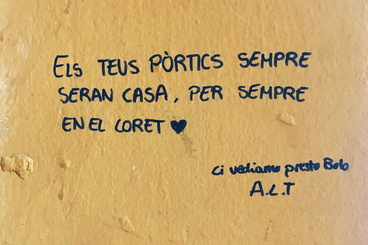 ELS TEUS PÒRTICS SEMPRE
SERAN CASA, PER SEMPRE
EN EL LORET ♥
ci vediamo presto Bolo
A.L.T